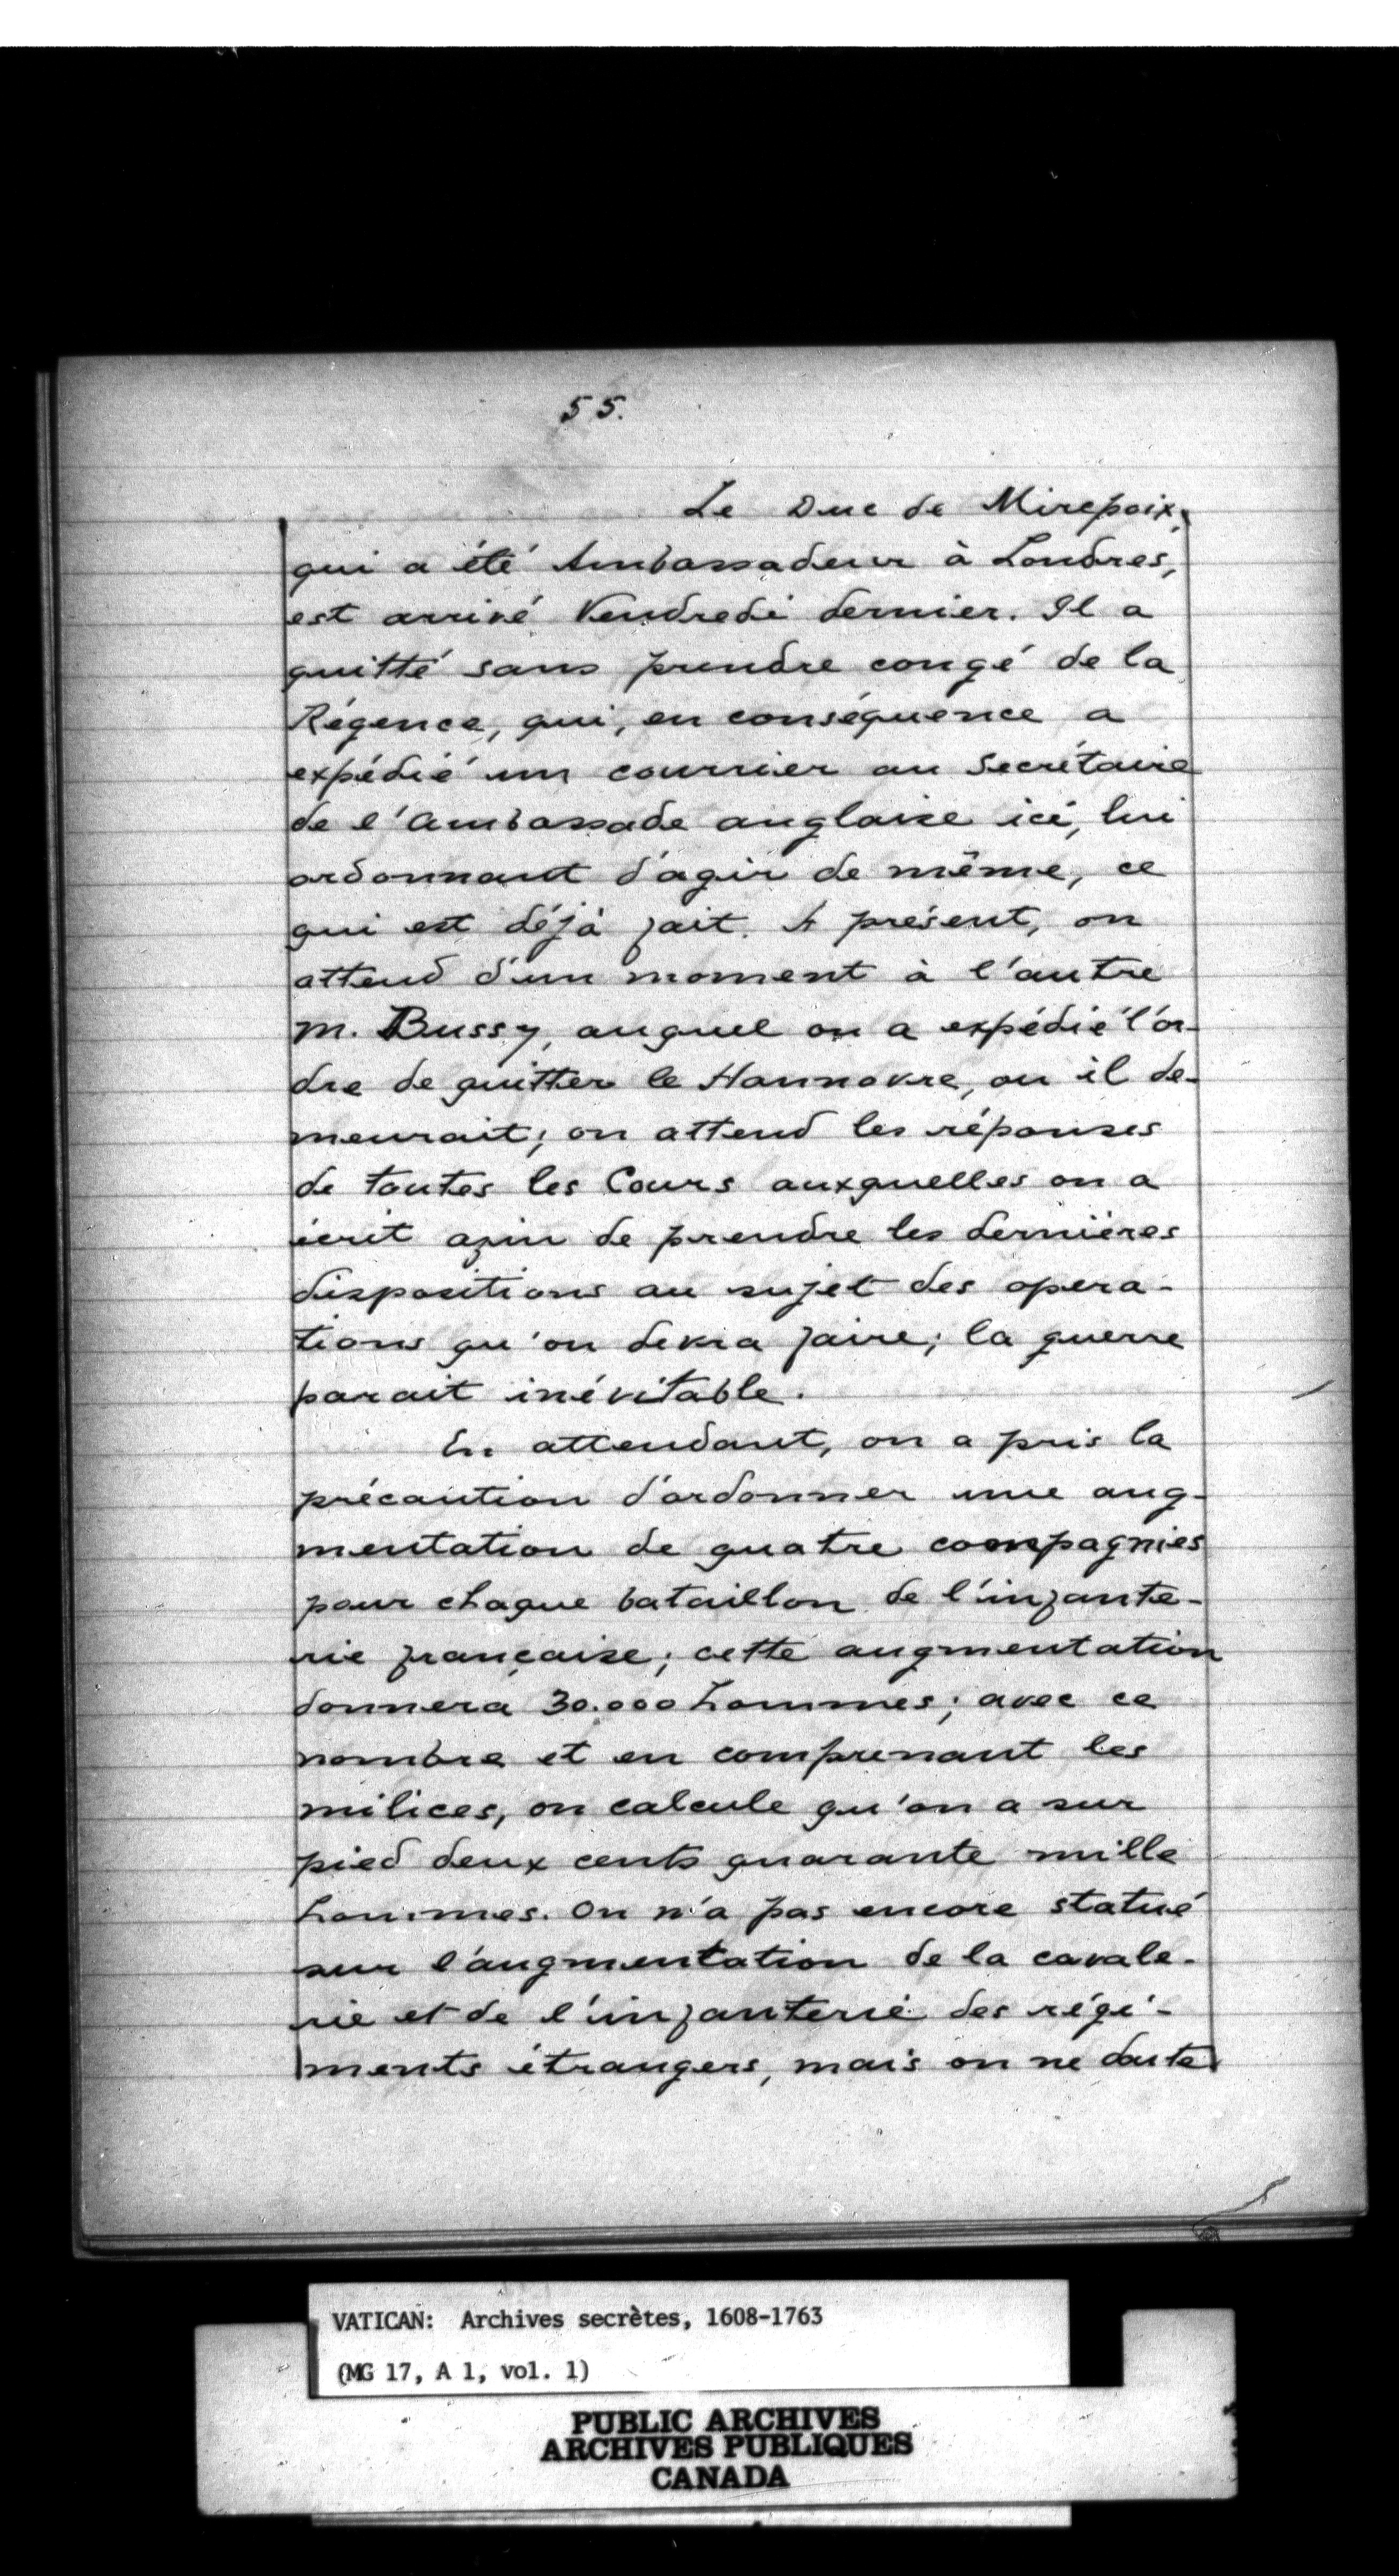 55.
Le Duc de Mirepoix,
qui a été Ambassadeur à Londres,
est arrivé Vendredi dernier. Il a
quitté sans prendre congé de la
Régence, qui, en conséquence a
expédié un courrier au Secrétaire
de l'Ambassade anglaise ici, lui
ordonnant d'agir de même, ce
qui est déjà fait. A présent, on
attend d'un moment à l'autre
M. Bussy, auquel on a expédié l'or-
dre de quitter le Hannovre, ou il de-
meurait; on attend les réponses
de toutes les Cours auxquelles on a
écrit afin de prendre les dernières
dispositions au sujet des opera-
tions qu'on devra faire; la guerre
parait inévitable.
En attendant, on a pris la
précaution d'ordonner une aug-
mentation de quatre compagnies
pour chaque bataillon de l'infante-
rie française; cette augmentation
donnera 30.000 hommes; avec ce
nombre et en comprenant les
milices, on calcule qu'on a sur
pied deux cents quarante mille
hommes. On n'a pas encore statué
sur l'augmentation de la cavale-
rie et de l'infanterie des régi-
ments étrangers, mais on ne doute
VATICAN: Archives secrètes, 1608-1763
(MG 17, A 1, vol. 1)
PUBLIC ARCHIVES
ARCHIVES PUBLIQUES
CANADA